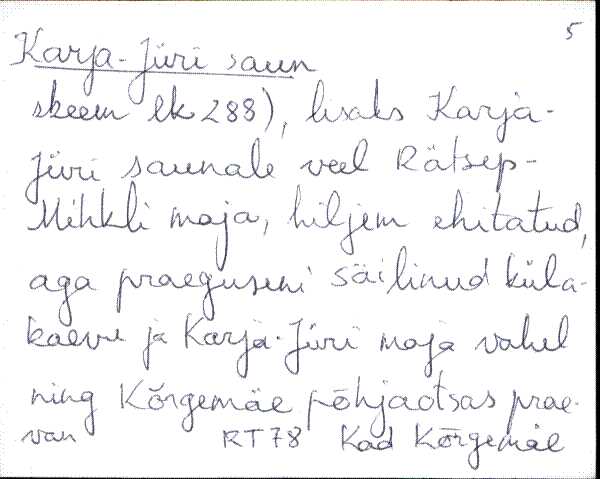 5
Karja-Jüri saun
skeem lk 288), lisaks Karja-
Jüri saunale veel Rätsep-
Mihkli maja, hiljem ehitatud,
aga praeguseni säilinud küla-
kaevu ja Karja-Jüri maja vahel
ning Kõrgemäe põhjaotsas prae-
van RT78 Kad Kõrgemäe